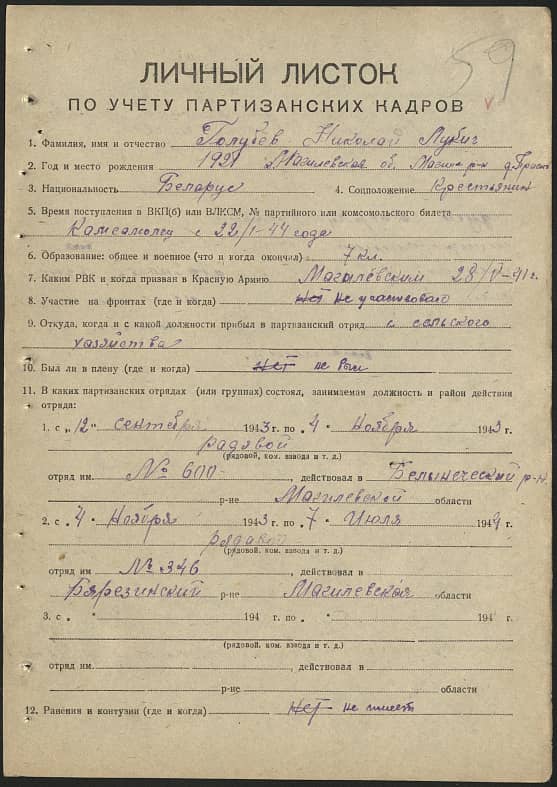 59
ЛИЧНЫЙ ЛИСТОК
ПО УЧЕТУ ПАРТИЗАНСКИХ КАДРОВ
1. Фамилия, имя и отчество Голубев Николай Лукич
2. Год и место рождения 1921 Магилевская об. Магил р-н д.
3. Национальность Беларус 4. Соцположение Крестьянин
5. Время поступления в ВКП(б) или ВЛКСМ, № партийного или комсомольского билета
Камсамолец с 22/I-44 года
6. Образование: общее и военное (что и когда окончил) 7 кл.
7. Каким РВК и когда призван в Красную Армию Магилевским 28/V-41 г.
8. Участие на фронтах (где и когда) нет не участвовал
9. Откуда, когда и с какой должности прибыл в партизанский отряд с сельского
хазяйства
10. Был ли в плену (где и когда) нет не был
11. В каких партизанских отрядах (или группах) состоял, занимаемая должность и район действия
отряда:
1. с „12" сентября 1943 г. по „4" Ноября 1943 г.
радавой
(рядовой, ком. взвода и т. д.)
отряд им № 600 , действовал в Белыничеcкий р-н
р-не Магилевской области
2. с „4" Ноября 1943 г. по „7" Июля 1944 г.
рядавой
(рядовой, ком. взвода и т. д.)
отряд им № 346 , действовал в
Бярезинский р-не Магилевская области
3. с „ " 194 г. по „ " 194 г.
(рядовой, ком. взвода и т. д.)
отряд им. , действовал в
р-не области
12. Ранения и контузии (где и когда) нет не имеет